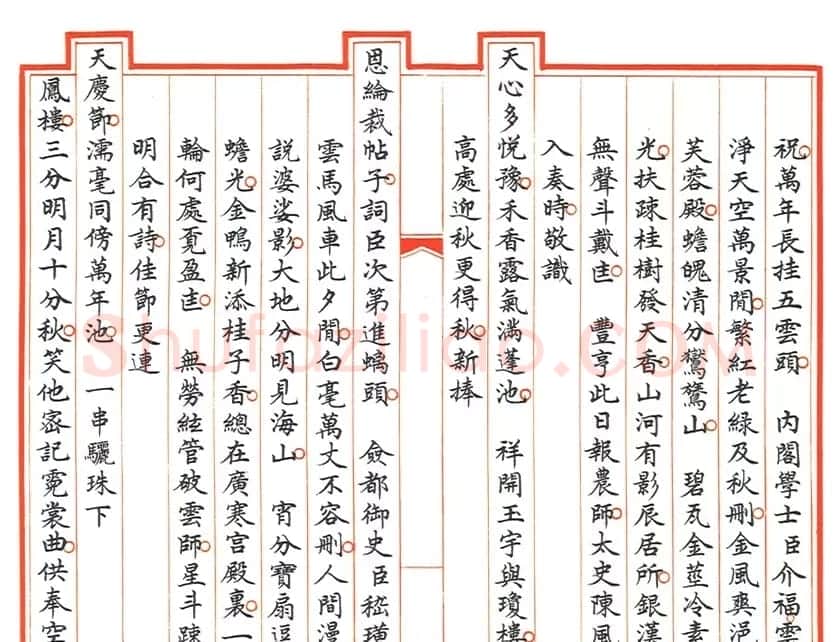 祝萬年長挂五雲頭　內閣學士臣介福雲
淨天空萬景閒繁紅老綠及秋刪金風爽浥
芙蓉殿蟾魄清分鷲鶖山　碧瓦金莖冷素
光扶疎桂樹發天香山河有影辰居所銀漢
無聲斗戴匡　豐亨此日報農師太史陳風
入奏時敬識
天心多悅豫禾香露氣滿蓬池　祥開玉宇與瓊樓
高處迎秋更得秋新捧
恩綸裁帖子詞臣次第進螭頭　僉都御史臣嵇璜
雲馬風車此夕閒白毫萬丈不容刪人間漫
說婆娑影大地分明見海山　宵分寶扇逗
蟾光金鴨新添桂子香總在廣寒宮殿裏一
輪何處覔盈匡　無勞絃管破雲師星斗疎
明合有詩佳節更連
天慶節濡毫同傍萬年池　一串驪珠下
鳳樓三分明月十分秋笑他宻記霓裳曲供奉空
Shufaziliao.COM